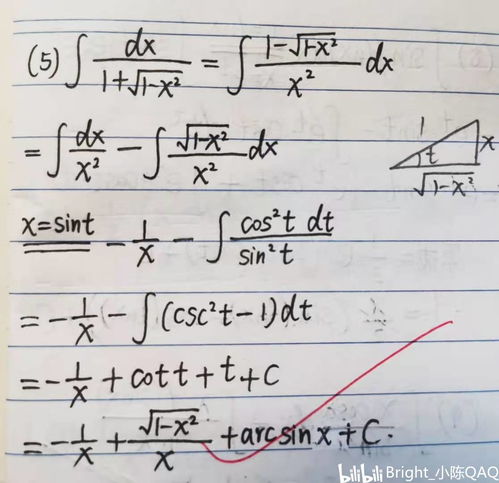 (5) ∫ dx/(1+√(1-x²)) = ∫ (1-√(1-x²))/x² dx
= ∫ dx/x² - ∫ √(1-x²)/x² dx
1 t x √(1-x²)
x=sint -1/x - ∫ cos²t dt/sin²t
= -1/x - ∫ (csc²t-1)dt
= -1/x + cott + t + C
= -1/x + √(1-x²)/x + arcsinx + C.
bilibili Bright_小陈QAQ